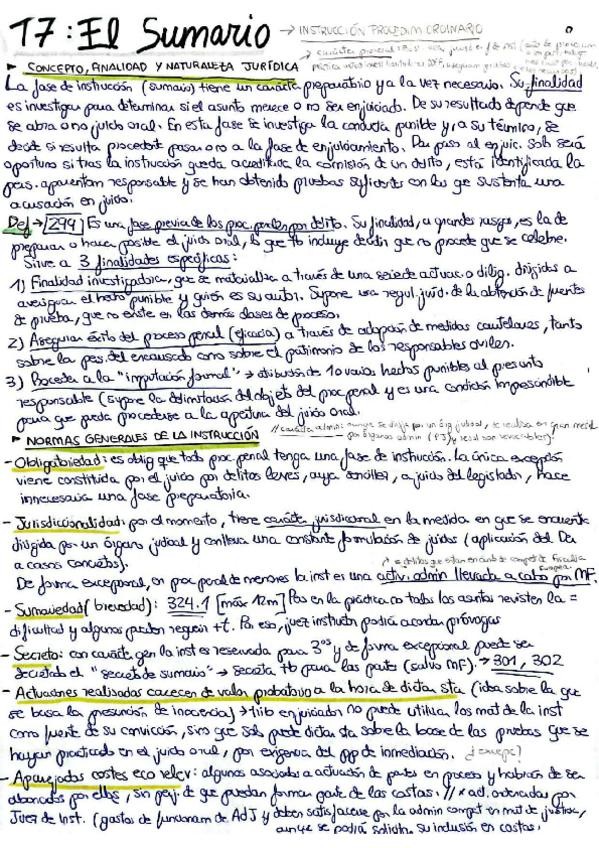 17: El Sumario → INSTRUCCIÓN PROCEDIM. ORDINARIO
► CONCEPTO, FINALIDAD Y NATURALEZA JURÍDICA
La fase de instrucción (sumario) tiene un carácter preparatorio y a la vez necesario. Su finalidad
es investigar para determinar si el asunto merece o no ser enjuiciado. De su resultado depende que
se abra o no juicio oral. En esta fase se investiga la conducta punible y, a su término, se
decide si resulta procedente pasar o no a la fase de enjuiciamiento. Dar paso al enjuic. solo será
oportuno si tras la instrucción queda acreditada la comisión de un delito, está identificada la
pers. aparentem responsable y se han obtenido pruebas suficientes con las que sustentar una
acusación en juicio.
Def → [299] Es una fase previa de los proc. penales por delito. Su finalidad, a grandes rasgos, es la de
preparar o hacer posible el juicio oral, lo que tb incluye decidir que no procede que se celebre.
Sirve a 3 finalidades específicas:
1) Finalidad investigadora, que se materializa a través de una serie de actuac. o dilig. dirigidas a
averiguar el hecho punible y quién es su autor. Supone una regul. juríd. de la obtención de fuentes
de prueba, que no existe en las demás clases de proceso.
2) Asegurar éxito del proceso penal (eficacia) a través de adopción de medidas cautelares, tanto
sobre la pers. del encausado como sobre el patrimonio de los responsables civiles.
3) Proceder a la "imputación formal" → atribución de 1 o varios hechos punibles al presunto
responsable (supone la delimitación del objeto del proc penal y es una condición imprescindible
para que pueda procederse a la apertura del juicio oral.
► NORMAS GENERALES DE LA INSTRUCCIÓN
- Obligatoriedad: es oblig que todo proc. penal tenga una fase de instrucción. La única excepción
viene constituida por el juicio por delitos leves, cuya sencillez, a juicio del legislador, hace
innecesaria una fase preparatoria.
- Jurisdiccionalidad: por el momento, tiene carácter jurisdiccional en la medida en que se encuentra
dirigida por un órgano judicial y conlleva una constante formulación de juicios (aplicación del Dcho
a casos concretos).
De forma excepcional, en proc penal de menores la inst es una activ. admin llevada a cabo por MF.
- Sumariedad (brevedad): 324.1 [máx 12m] Pero en la práctica no todos los asuntos revisten la =
dificultad y algunos pueden requerir +t. Por eso, juez instructor podrá acordar prórrogas
- Secreto: con carácter gen la inst es reservada para 3os y de forma excepcional puede ser
decretado el "secreto de sumario" → secreta tb para las partes (salvo MF). → 301, 302
- Actuaciones realizadas carecen de valor probatorio a la hora de dictar sta (idea sobre la que
se basa la presunción de inocencia) → trib enjuiciador no puede utilizar los mat de la inst
como fuente de su convicción, sino que solo puede dictar sta sobre la base de las pruebas que se
hayan practicado en el juicio oral, por exigencia del pp de inmediación. ¿excepc?
- Aparejados costes eco relev: algunos asociados a actuación de partes en proceso y habrán de ser
abonados por ellas, sin perj. de que puedan formar parte de las costas. // × act. ordenadas por
Juez de Inst. (gastos de funcionam de AdJ y deben satisfacerse por la admin compet en mat de justicia,
aunque se podrá solicitar su inclusión en costas.